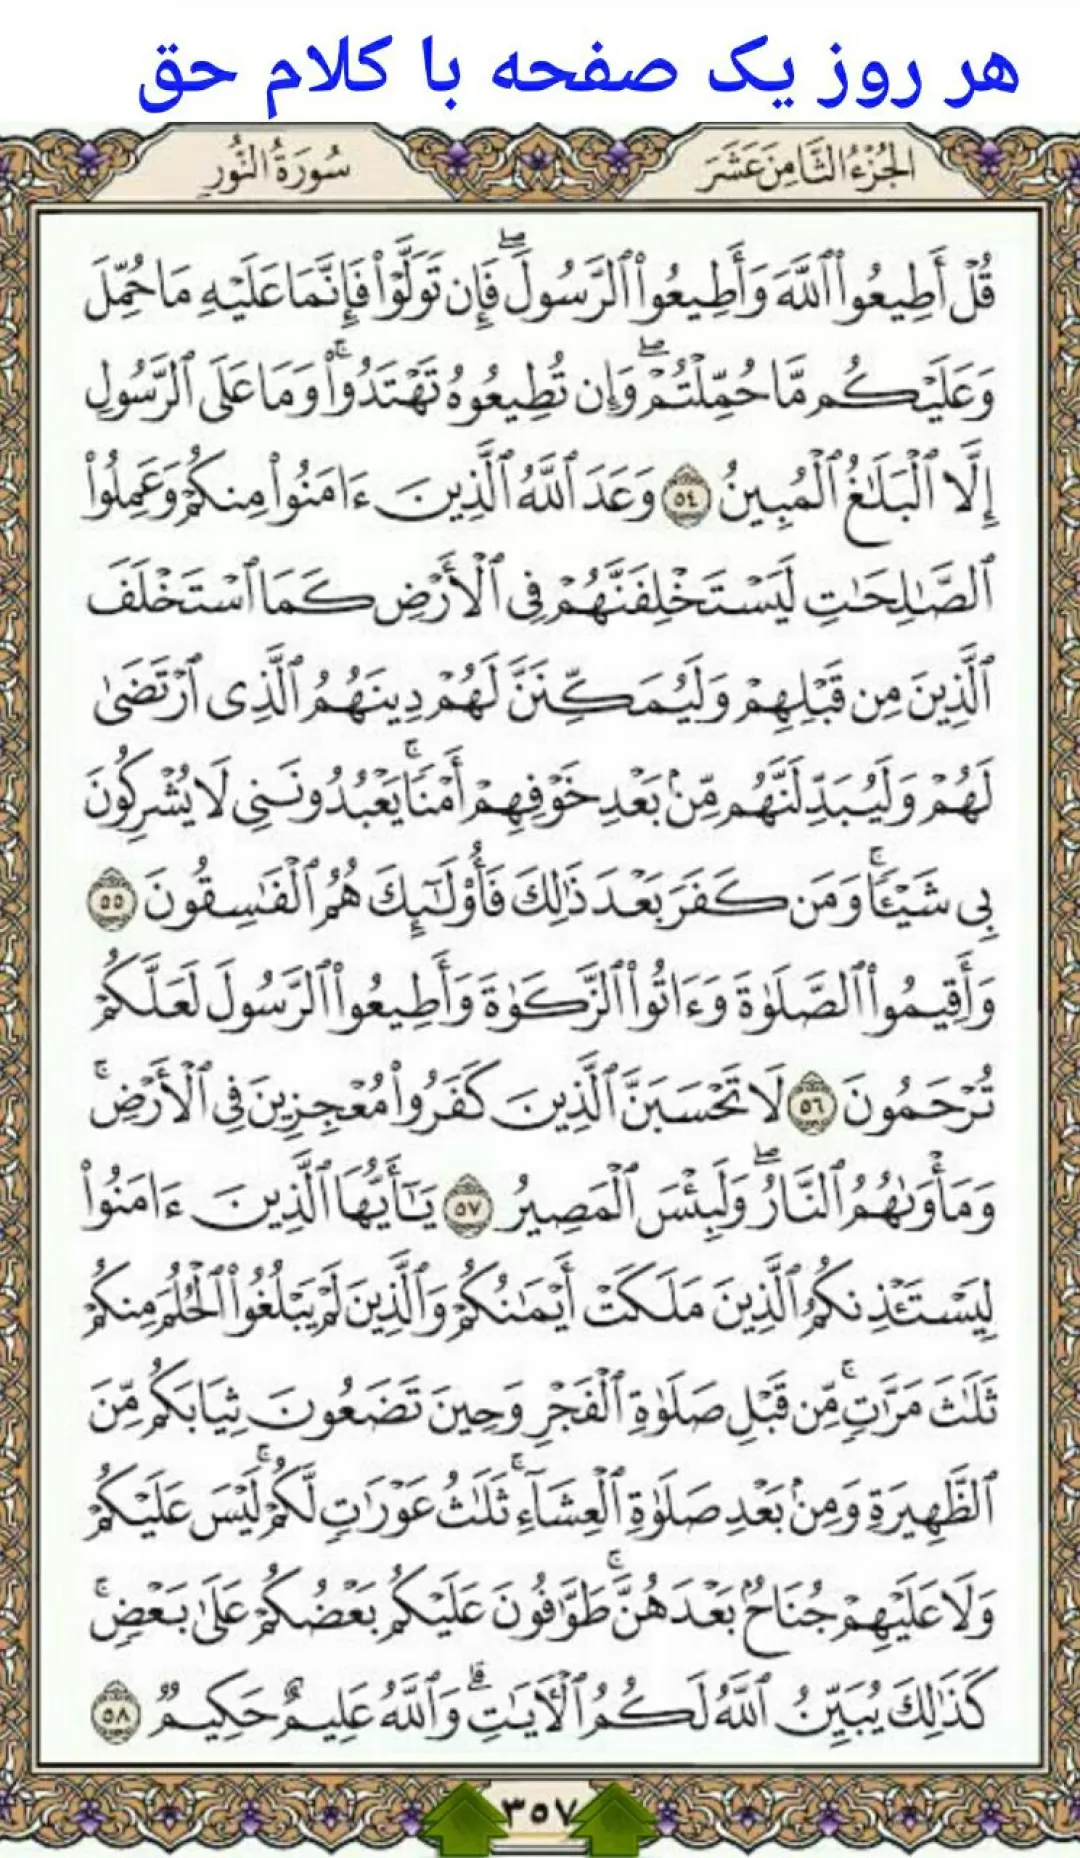 هر روز یک صفحه با کلام حق
الجُزْءُ الثَّامِنَ عَشَرَ
سُورَةُ النُّورِ
قُلْ أَطِيعُوا۟ ٱللَّهَ وَأَطِيعُوا۟ ٱلرَّسُولَ ۖ فَإِن تَوَلَّوْا۟ فَإِنَّمَا عَلَيْهِ مَا حُمِّلَ
وَعَلَيْكُم مَّا حُمِّلْتُمْ ۖ وَإِن تُطِيعُوهُ تَهْتَدُوا۟ ۚ وَمَا عَلَى ٱلرَّسُولِ
إِلَّا ٱلْبَلَٰغُ ٱلْمُبِينُ ٥٤ وَعَدَ ٱللَّهُ ٱلَّذِينَ ءَامَنُوا۟ مِنكُمْ وَعَمِلُوا۟
ٱلصَّٰلِحَٰتِ لَيَسْتَخْلِفَنَّهُمْ فِى ٱلْأَرْضِ كَمَا ٱسْتَخْلَفَ
ٱلَّذِينَ مِن قَبْلِهِمْ وَلَيُمَكِّنَنَّ لَهُمْ دِينَهُمُ ٱلَّذِى ٱرْتَضَىٰ
لَهُمْ وَلَيُبَدِّلَنَّهُم مِّنۢ بَعْدِ خَوْفِهِمْ أَمْنًا ۚ يَعْبُدُونَنِى لَا يُشْرِكُونَ
بِى شَيْـًٔا ۚ وَمَن كَفَرَ بَعْدَ ذَٰلِكَ فَأُو۟لَٰٓئِكَ هُمُ ٱلْفَٰسِقُونَ ٥٥
وَأَقِيمُوا۟ ٱلصَّلَوٰةَ وَءَاتُوا۟ ٱلزَّكَوٰةَ وَأَطِيعُوا۟ ٱلرَّسُولَ لَعَلَّكُمْ
تُرْحَمُونَ ٥٦ لَا تَحْسَبَنَّ ٱلَّذِينَ كَفَرُوا۟ مُعْجِزِينَ فِى ٱلْأَرْضِ ۚ
وَمَأْوَىٰهُمُ ٱلنَّارُ ۖ وَلَبِئْسَ ٱلْمَصِيرُ ٥٧ يَٰٓأَيُّهَا ٱلَّذِينَ ءَامَنُوا۟
لِيَسْتَـْٔذِنكُمُ ٱلَّذِينَ مَلَكَتْ أَيْمَٰنُكُمْ وَٱلَّذِينَ لَمْ يَبْلُغُوا۟ ٱلْحُلُمَ مِنكُمْ
ثَلَٰثَ مَرَّٰتٍ ۚ مِّن قَبْلِ صَلَوٰةِ ٱلْفَجْرِ وَحِينَ تَضَعُونَ ثِيَابَكُم مِّنَ
ٱلظَّهِيرَةِ وَمِنۢ بَعْدِ صَلَوٰةِ ٱلْعِشَآءِ ۚ ثَلَٰثُ عَوْرَٰتٍ لَّكُمْ ۚ لَيْسَ عَلَيْكُمْ
وَلَا عَلَيْهِمْ جُنَاحٌۢ بَعْدَهُنَّ ۚ طَوَّٰفُونَ عَلَيْكُم بَعْضُكُمْ عَلَىٰ بَعْضٍ ۚ
كَذَٰلِكَ يُبَيِّنُ ٱللَّهُ لَكُمُ ٱلْءَايَٰتِ ۗ وَٱللَّهُ عَلِيمٌ حَكِيمٌ ٥٨
٣٥٧